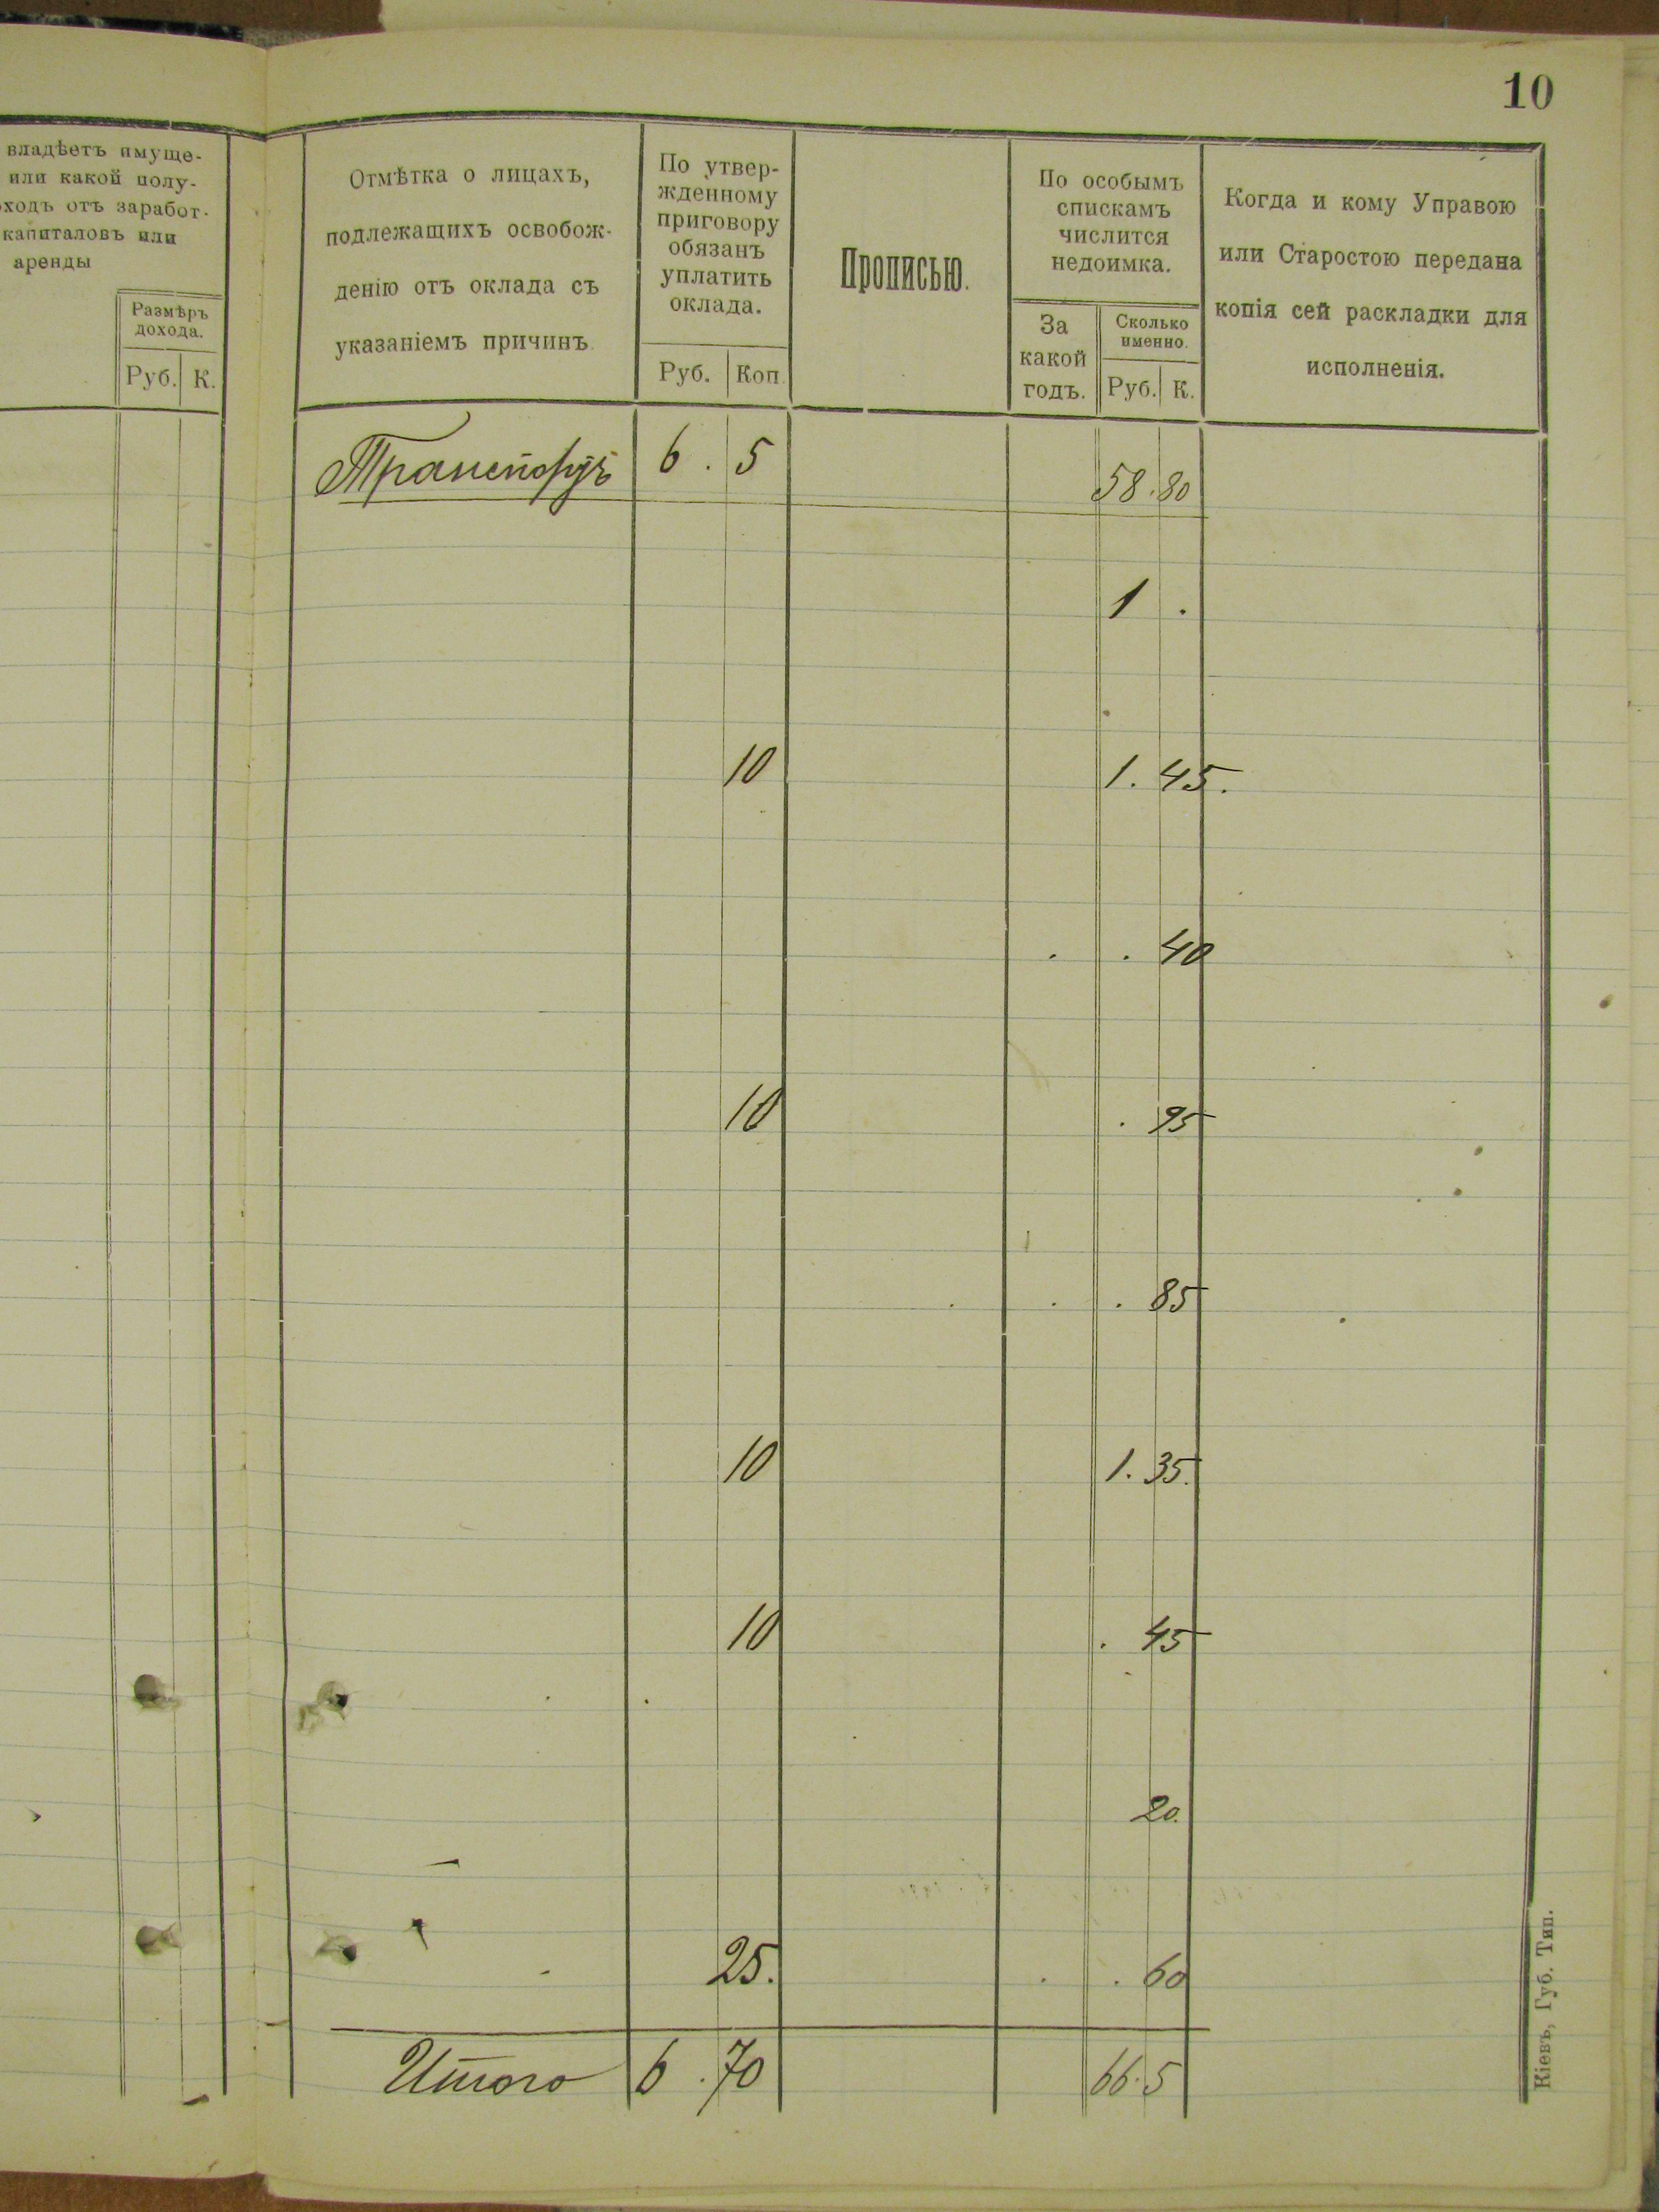 10
владѣетъ имуще-
или какой полу-
ходъ отъ заработ.
капиталовъ или
аренды
Размѣръ
дохода.
Руб. К.
Отмѣтка о лицахъ,
подлежащихъ освобож-
денію отъ оклада съ
указаніемъ причинъ
По утвер-
жденному
приговору
обязанъ
уплатить
оклада.
Руб. Коп.
Прописью.
По особымъ
спискамъ
числится
недоимка.
За
какой
годъ.
Сколько
именно.
Руб. К.
Когда и кому Управою
или Старостою передана
копія сей раскладки для
исполненія.
Транспортъ 6 . 5 58 . 80
1 .
10 1 . 45 .
. . 40
10 . 95
. . 85
10 1 . 35 .
10 . 45
20 .
25 . . . 60
Итого 6 . 70 66 . 5
Кіевъ, Губ. Тип.